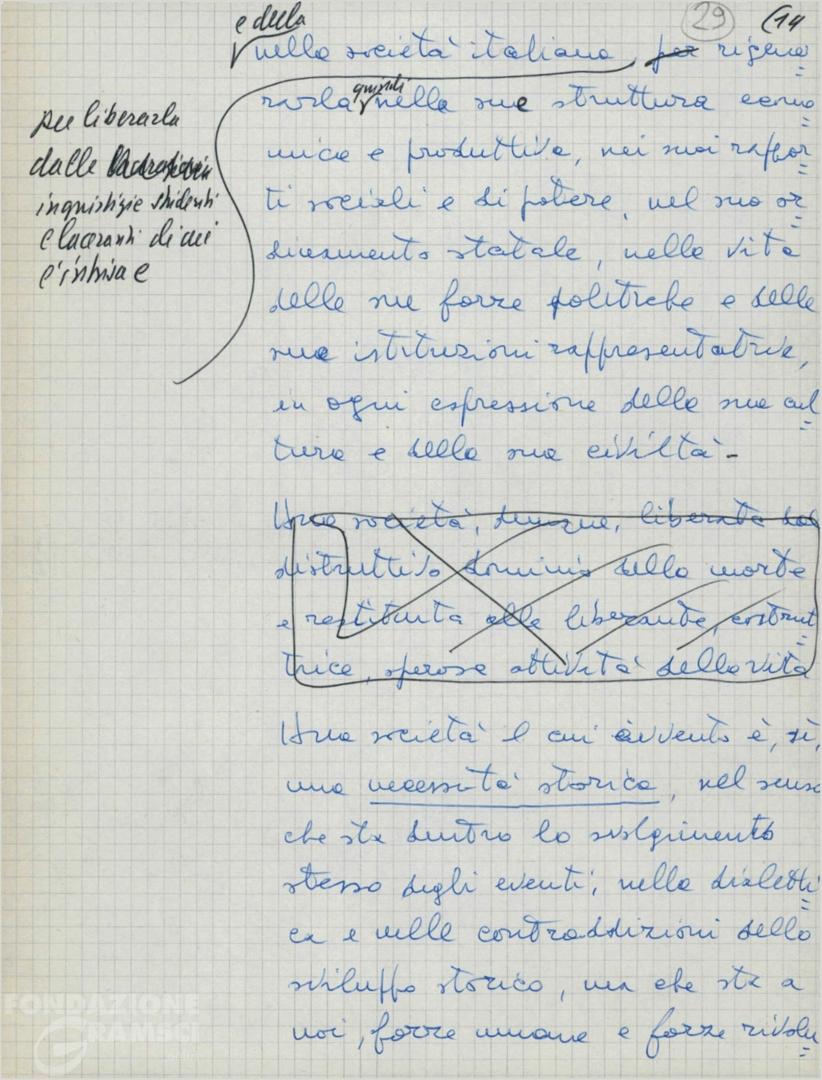 29
(14
e della
nella società italiana, per rigene
rarla quindi nella sua struttura econo
mica e produttiva, nei suoi rappor
ti sociali e di potere, nel suo or
dinamento statale, nella vita
delle sue forze politiche e delle
sue istituzioni rappresentative,
in ogni espressione della sua cul
tura e della sua civiltà -
per liberarla
dalle
ingiustizie stridenti
e laceranti di cui
è intrisa e
Una società, dunque, liberata dal
distruttivo dominio della morte
e restituita alla liberante, costrut
trice, operosa attività della vita
Una società il cui avvento è, sì,
una necessità storica, nel senso
che sta dentro lo svolgimento
stesso degli eventi, nella dialetti
ca e nelle contraddizioni dello
sviluppo storico, ma che sta a
noi, forze umane e forze rivolu
FONDAZIONE
GRAMSCI